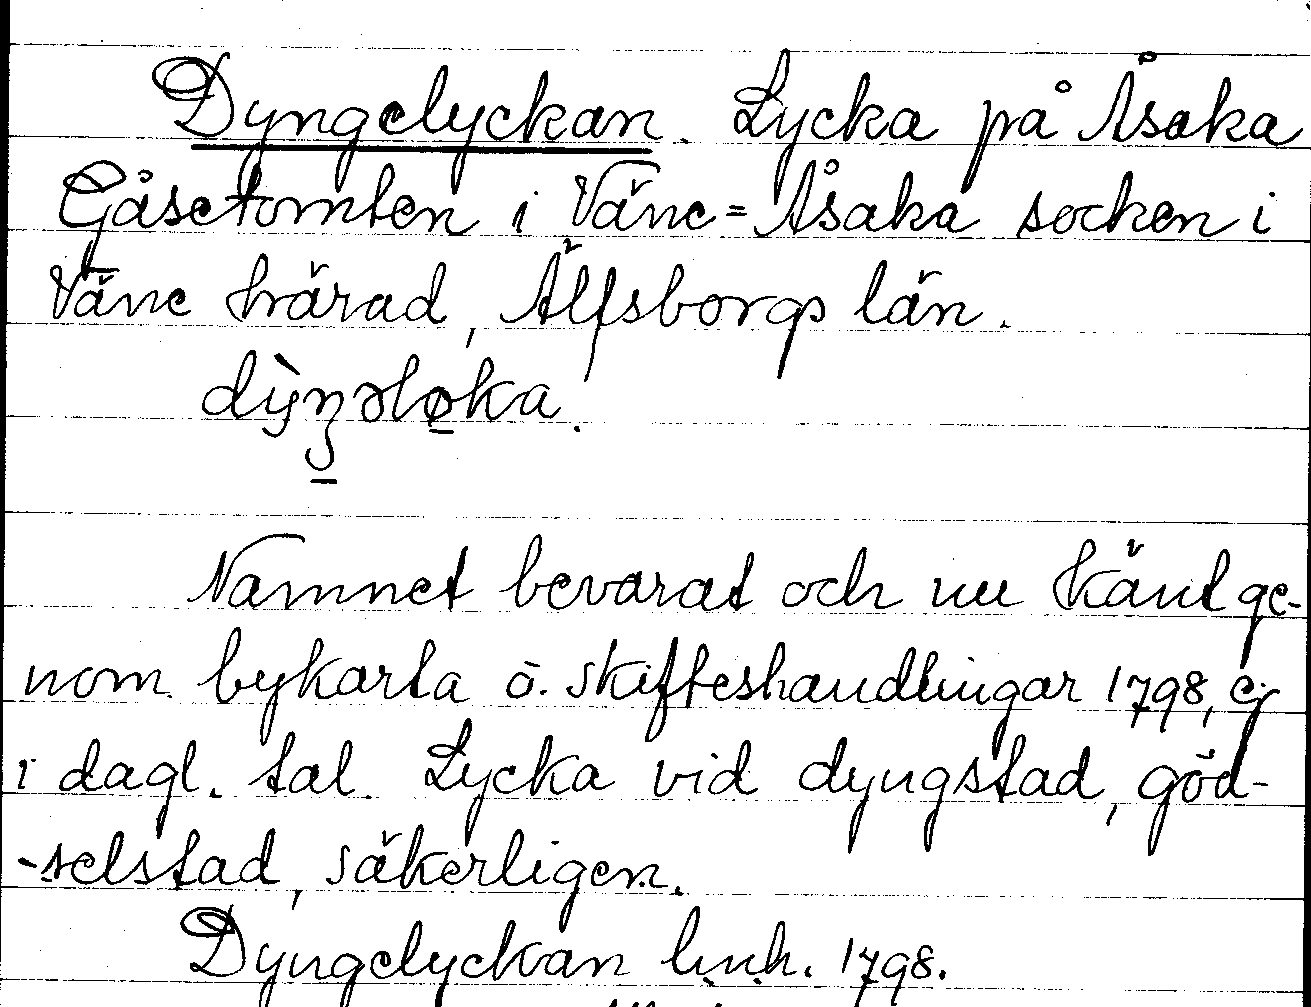 Dyngelyckan. Lycka på Åsaka
Gåsetomten i Väne=Åsaka socken i
Väne härad, Älfsborgs län.
dỳŋəløka.
Namnet bevarat och nu känt ge-
nom bykarta o. skifteshandlingar 1798, ej
i dagl. tal. Lycka vid dyngstad, göd-
-selstad, säkerligen.
Dyngelyckan 1798.